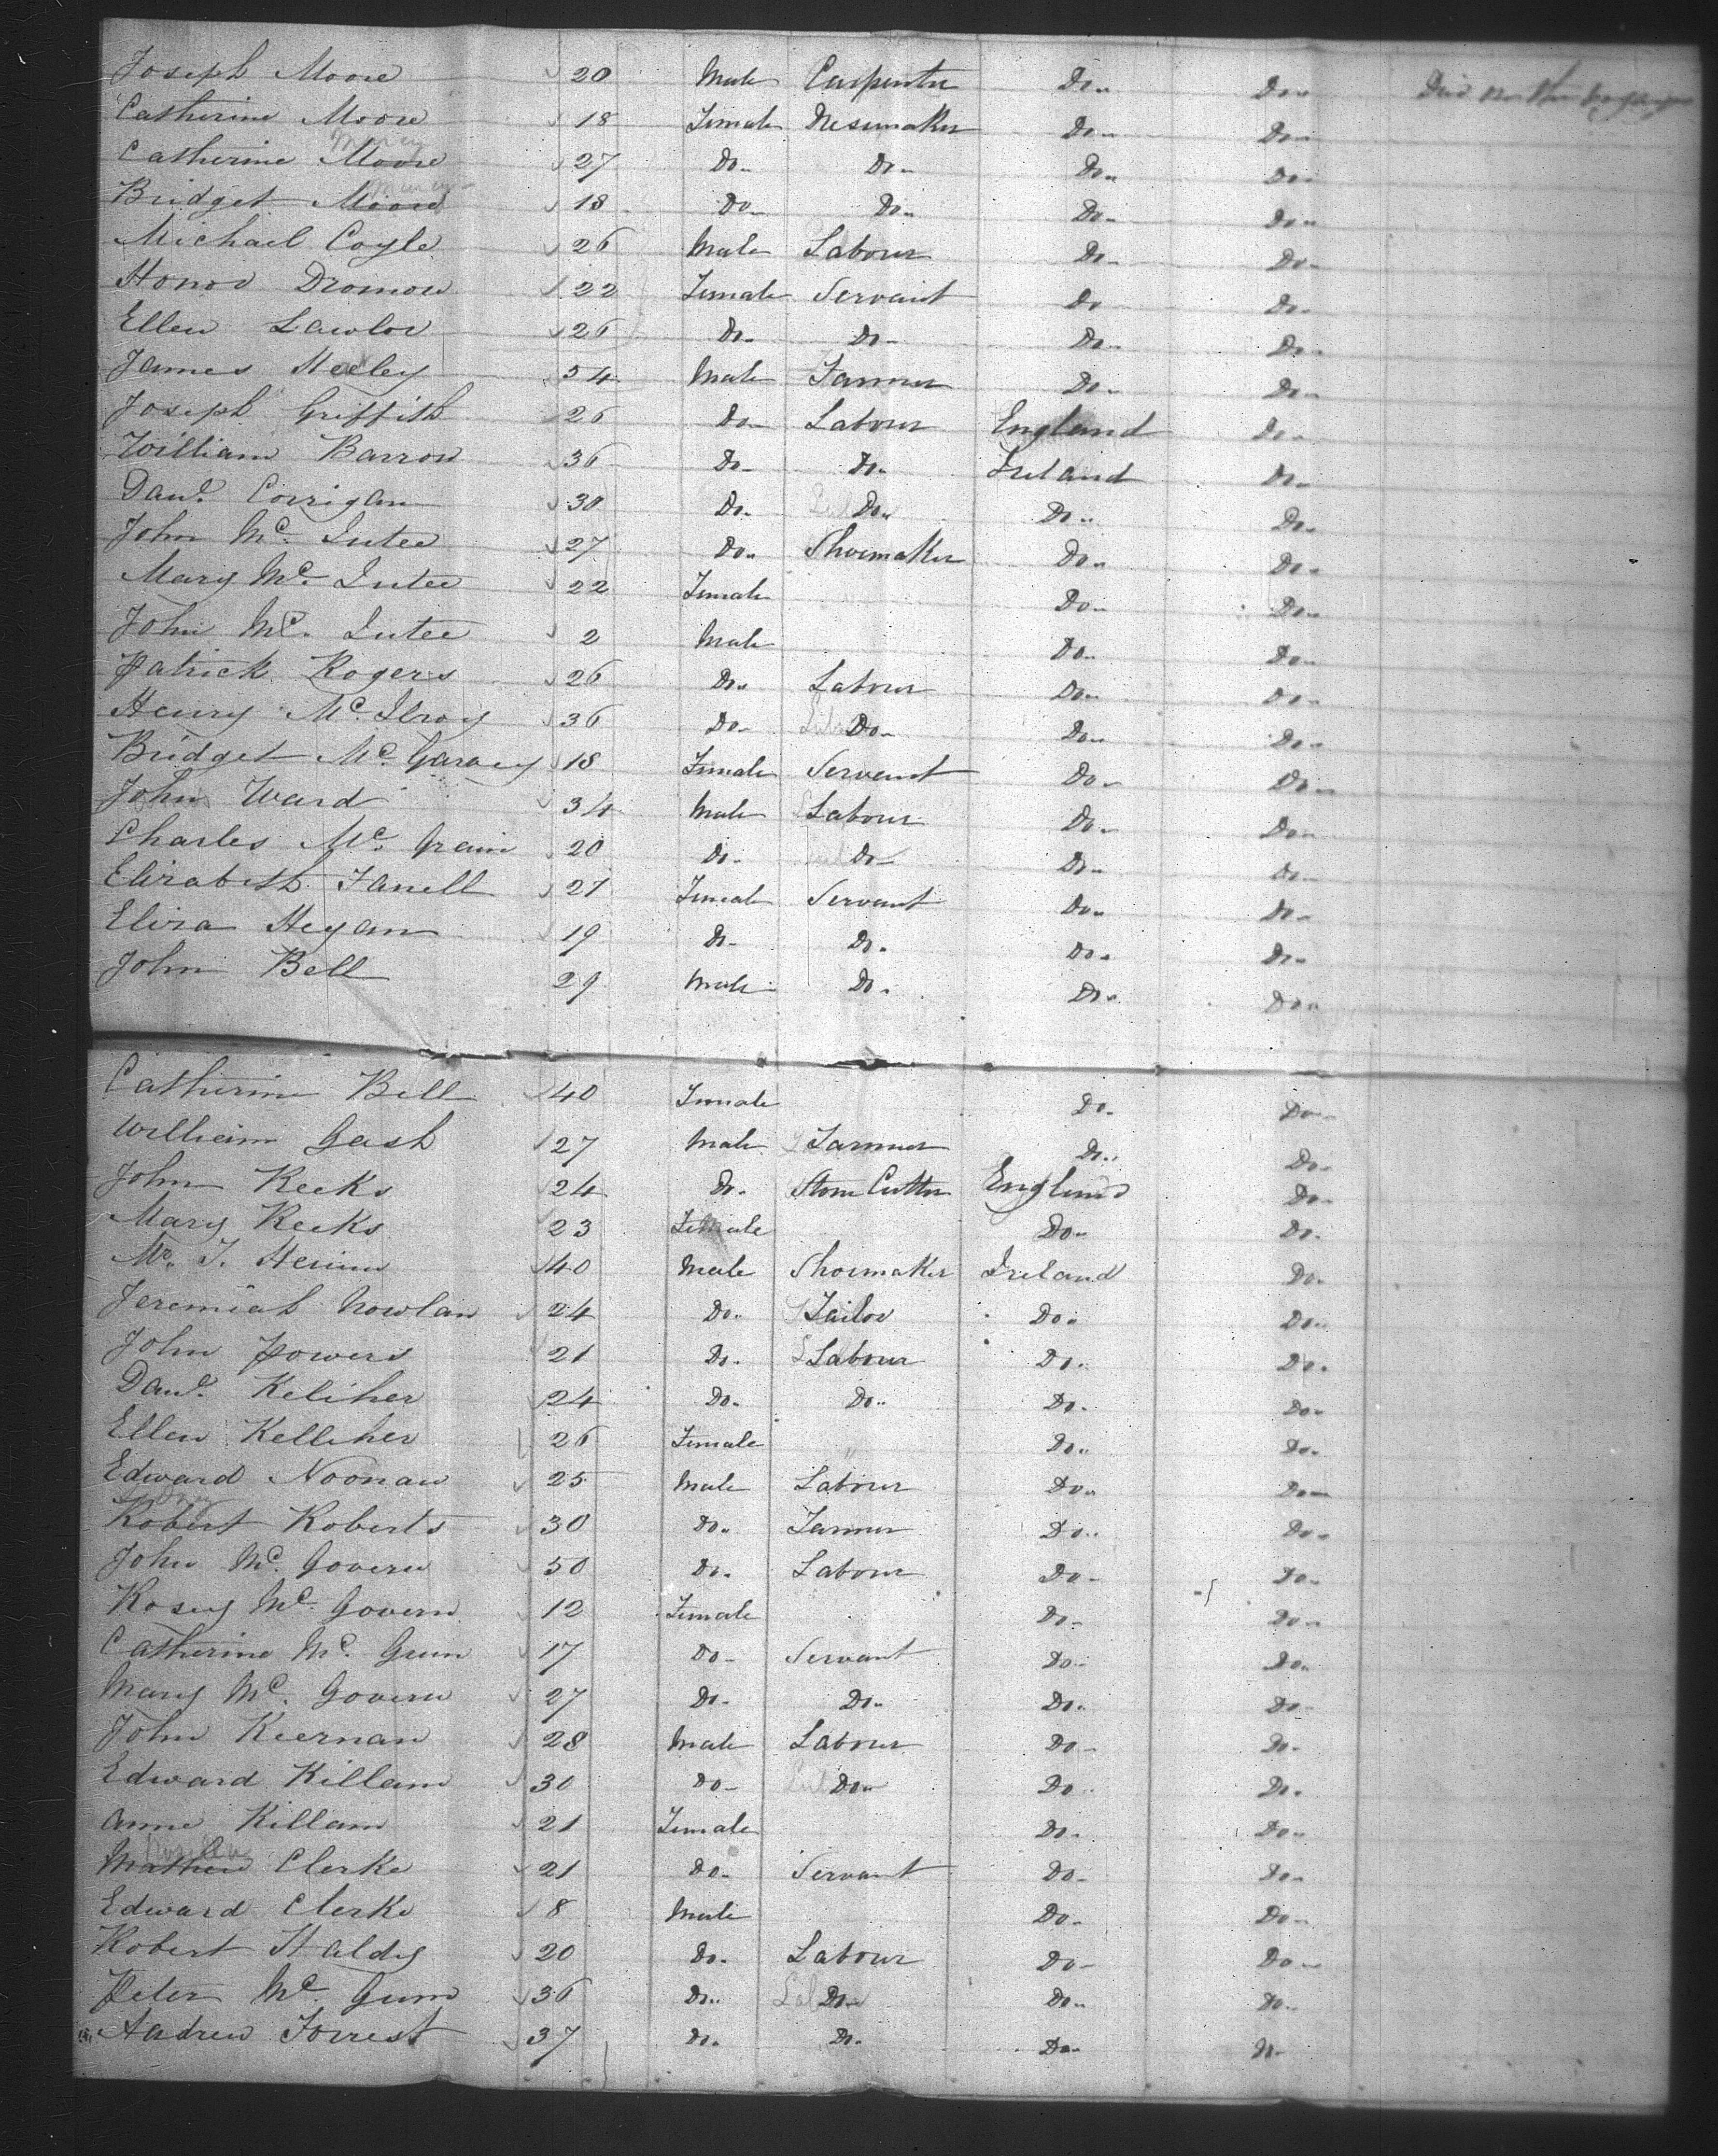 Joseph Moore 20 Male Carpenter Do Do Died
Catherine Moore 18 Female Dresmaker Do Do
Catherine Moore 27 Do Do Do Do
Bridget Moore 18 Do Do Do Do
Michael Coyle 26 Male Labour Do Do
Honor Dromow 22 Female Servant Do Do
Ellen Lawlor 26 Do Do Do Do
James Heeley 54 Male Farmer Do Do
Joseph Griffith 26 Do Labour England Do
William Barrow 36 Do Do Ireland Do
Danl. Corrigan 30 Do Do Do Do
John Mc. Intee 27 Do Shoemaker Do Do
Mary Mc. Intee 22 Female Do Do
John Mc. Intee 2 Male Do Do
Patrick Rogers 26 Do Labour Do Do
Henry Mc. Ilroy 36 Do Do Do Do
Bridget Mc. Garvey 18 Female Servant Do Do
John Ward 34 Male Labour Do Do
Charles Mc. Grain 20 Do Do Do Do
Elizabeth Farrell 21 Female Servant Do Do
Eliza Hegan 19 Do Do Do Do
John Bell 29 Male Do Do Do
Catherine Bell 40 Female Do Do
William Gash 27 Male Farmer Do Do
John Keeks 24 Do Stone Cutter England Do
Mary Keeks 23 Female Do Do
Mr. T. 40 Male Shoemaker Ireland Do
Jeremiah Nowlan 24 Do Tailor Do Do
John Powers 21 Do Labour Do Do
Danl. Keliher 24 Do Do Do Do
Ellen Kelliher 26 Female Do Do
Edward Noonan 25 Male Labour Do Do
Robert Roberts 30 Do Farmer Do Do
John Mc. Govern 50 Do Labour Do Do
Rosey Mc. Govern 12 Female Do Do
Catherine Mc. Gunn 17 Do Servant Do Do
Mary Mc. Govern 27 Do Do Do Do
John Keernan 28 Male Labour Do Do
Edward Killam 30 Do Do Do Do
Anne Killam 21 Female Do Do
Mathew Clerke 21 Do Servant Do Do
Edward Clerke 8 Male Do Do
Robert Haldy 20 Do Labour Do Do
Peter Mc. Gunn 36 Do Do Do Do
Andrew Forrest 37 Do Do Do Do